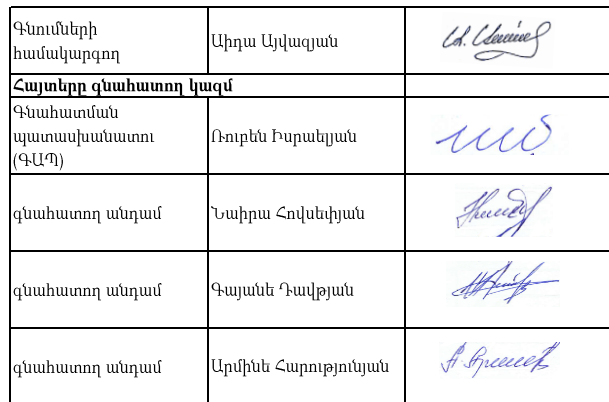 Գնումների
համակարգող
Աիդա Այվազյան
Հայտերը գնահատող կազմ
Գնահատման
պատասխանատու
(ԳԱՊ)
Ռուբեն Իսրաելյան
գնահատող անդամ
Նաիրա Հովսեփյան
գնահատող անդամ
Գայանե Դավթյան
գնահատող անդամ
Արմինե Հարությունյան